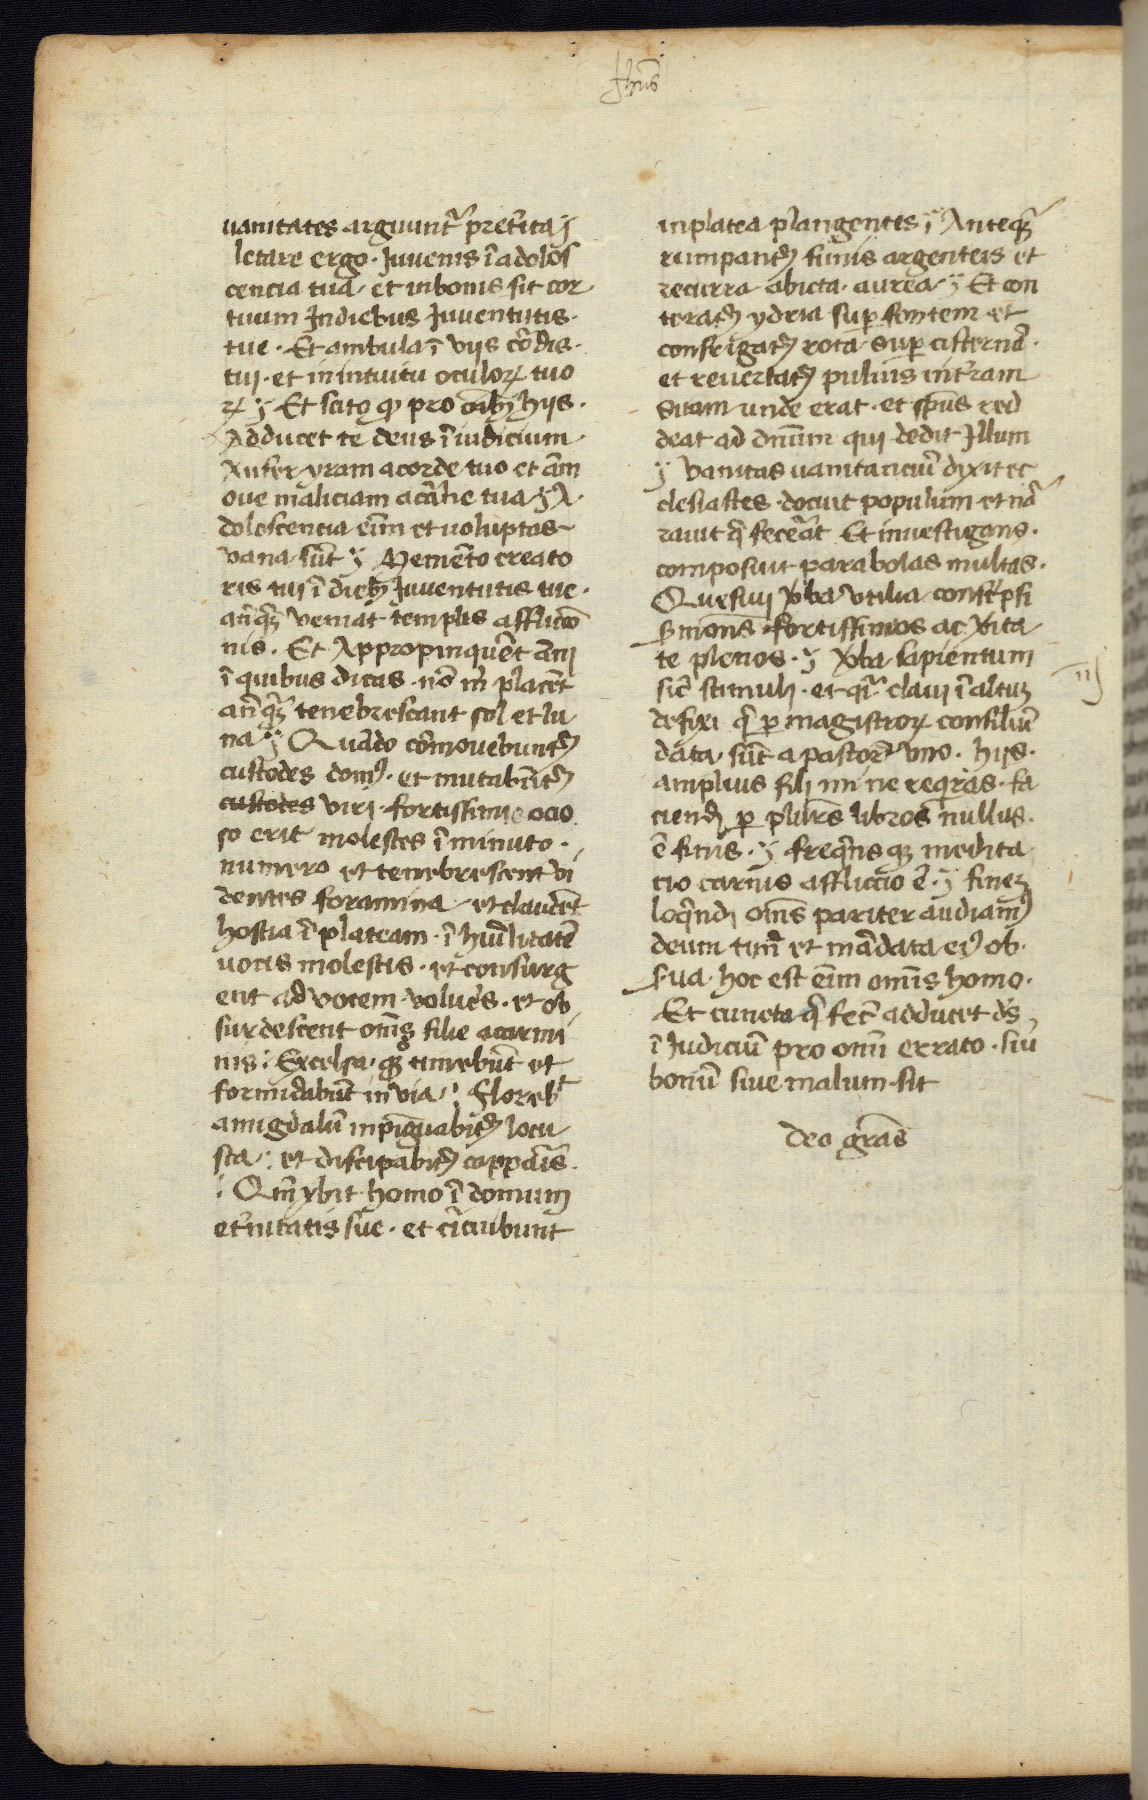 Jhus
vanitates arguunt᷑ pret̾ita ÿ
letare ergo · Juvenis ī adoles
cencia tua · et in bonis sit cor
tuum In diebus Juventutis ·
tue · Et ambula ī vijs cōdis ·
tuj · et in intuitu oculoꝝ tuo
ꝝ ÿ Et scito ꝙ pro oībꝫ hijs ·
Adducet te deus ī iudicium
Aufer yram a corde tuo et am̄
oue maliciam a cāne tua ÿ A
dolescencia eīm et uoluptas
vana sūt ÿ Memēto creato
ris tuj ī diebꝫ Juventutis tue ·
an̄qꝫ veniat templis afflictō
nis · Et Appropinquēt ānj
ī quibus dicas · nō m̄ placēt
an̄qꝫ tenebrescant sol et lu
na ÿ Quādo cōmovebunt᷑
custodes domꝰ · et mutabūt᷑
custodes virj · fortissimi e ocio
so erit molestes ī minuto ·
numero et tenebrescent vi
dentes foramina · et claudēt
hostia ī plateam · ī hum̄litatē
uocis molestis · et consurg
ent ad vocem volucͬs · et ob
surdescent om̄s filie a carmi
nis : Excelsa · qꝫ timebūt et
formidabūt in via : Florebt
amigdalū inpīguabit᷑ locu
sta : et discipabit᷑ capparis ·
: Qm̄ ybit homo ī domum
et̾nitatis sue · et cīcuibunt
in platea plangentes ÿ Anteqꝫ
rumpant᷑ funis argenteis et
recurra abicta · aurea ÿ Et con
terat᷑ ydria suꝑ fontem et
confrigat᷑ rota · suꝑ cisternā ·
et revertat᷑ puluis in t̾ram
suam unde erat · et sp̄us red
deat ad dn̄um qui dedit Illum
ÿ vanitas vanitaticiū dyxit ec
clesiastes · docuit populum et nā
rauit q̄ fecerāt Et investigans ·
composuit parabolas multas ·
Quesiuj v̾ba vtilia conscͥpsi
s̾mones fortissimos ac v̾ita
te plenos · ÿ v̾ba sapientum
sic̄ stimulj · et qͣsi clavi ī altuꝫ
defixi q̄ ꝑ magistroꝝ consiliū
data sūt a pastorē vno · hijs ·
amplius filj mi ne reqͥras · fa
ciendj ꝑ plures libros nullus ·
ē finis · ÿ freqn̄s qꝫ medita
cio carnis affliccio ē · ÿ fineꝫ
loqn̄dj om̄s pariter audiamꝰ
deum timē et mādata eiꝰ ob
s̾ua · hoc est eīm omīs homo ·
Et cuncta q̄ fēt adducet ds̄
ī Judiciū pro omī errato · siū
bonū siue malum · sit
iij
deo grās